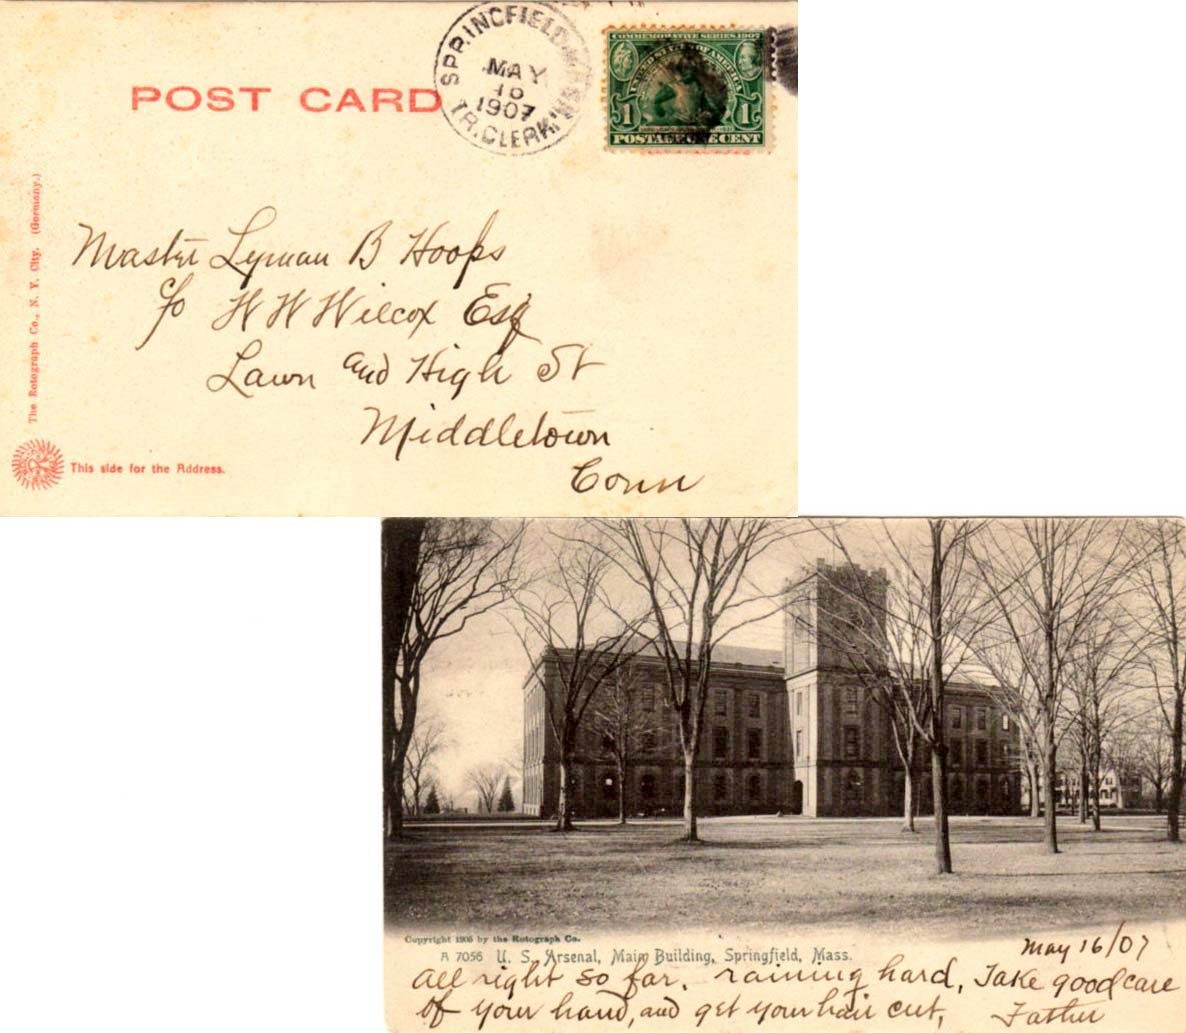 SPRINGFIELD, MASS.
MAY
16
1907
TR. CLERK.
COMMEMORATIVE SERIES 1907
UNITED STATES OF AMERICA
1 1
POSTAGE ONE CENT
POST CARD
Master Lyman B Hoops
c/o W W Wilcox Esq
Lawn and High St
Middletown
Conn
The Rotograph Co., N. Y. City. (Germany.)
This side for the Address.
Copyright 1905 by the Rotograph Co.
A 7056 U. S. Arsenal, Main Building, Springfield, Mass.
May 16/07
All right so far. raining hard, Take good care
of your hand, and get your hair cut,
Father